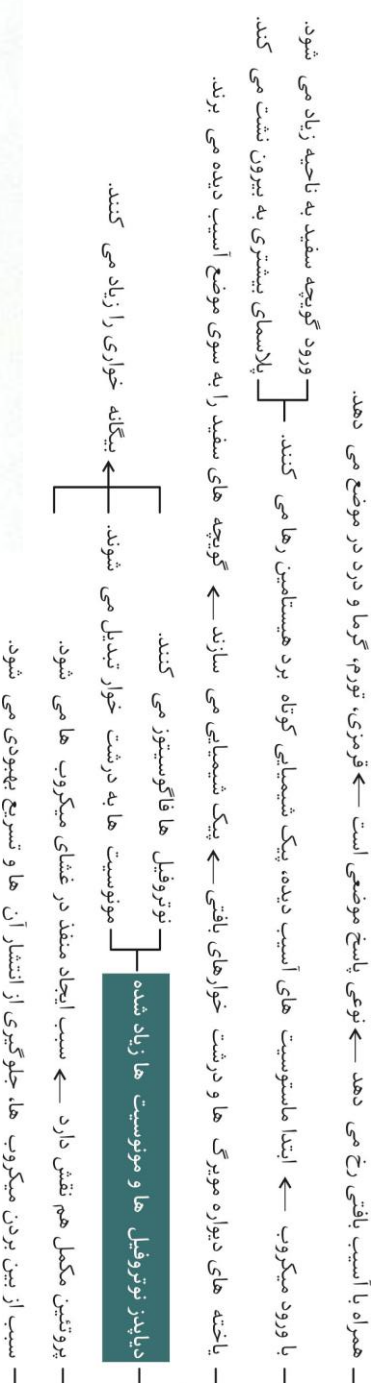 همراه با آسیب بافتی رخ می دهد ← نوعی پاسخ موضعی است ← قرمزی، تورم، گرما و درد در موضع می دهد.
با ورود میکروب ← ابتدا ماستوسیت های آسیب دیده، پیک شیمیایی کوتاه برد هیستامین رها می کنند.
ورود گویچه سفید به ناحیه زیاد می شود.
پلاسمای بیشتری به بیرون نشت می کند.
یاخته های دیواره مویرگ ها و درشت خوارهای بافتی ← پیک شیمیایی می سازند ← گویچه های سفید را به سوی موضع آسیب دیده می برند.
دیاپدز نوتروفیل ها و مونوسیت ها زیاد شده
نوتروفیل ها فاگوسیتوز می کنند.
مونوسیت ها به درشت خوار تبدیل می شوند.
بیگانه خواری را زیاد می کنند.
پروتئین مکمل هم نقش دارد ← سبب ایجاد منفذ در غشای میکروب ها می شود.
سبب از بین بردن میکروب ها، جلوگیری از انتشار آن ها و تسریع بهبودی می شود.